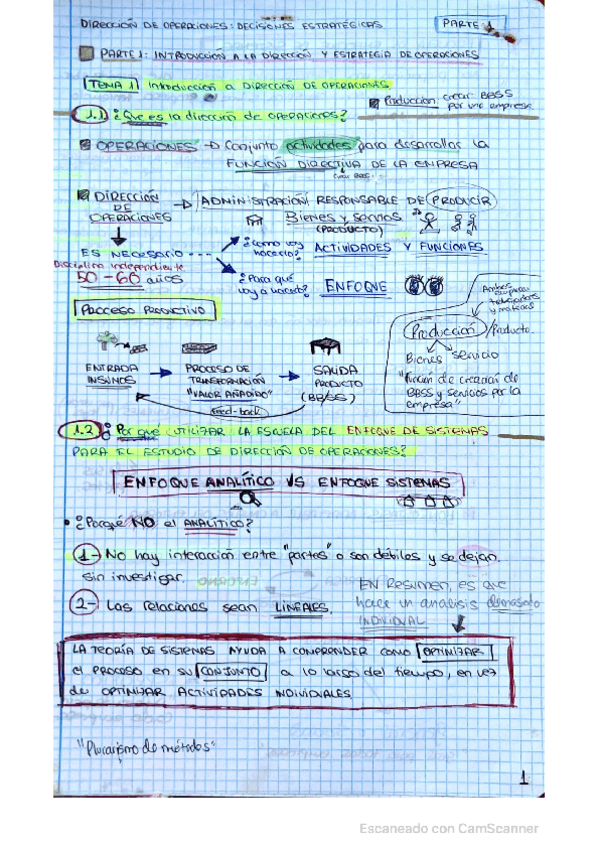 DIRECCIÓN DE OPERACIONES: DECISIONES ESTRATÉGICAS
PARTE 1
PARTE 1: INTRODUCCIÓN A LA DIRECCIÓN Y ESTRATEGIA DE OPERACIONES
TEMA 1 Introducción a DIRECCIÓN DE OPERACIONES
Producción crear BBSS
por una empresa
1.1 ¿Que es la dirección de operaciones?
OPERACIONES → Conjunto actividades para desarrollar la
FUNCIÓN DIRECTIVA DE LA EMPRESA
DIRECCIÓN
DE
OPERACIONES
→ ADMINISTRACIÓN RESPONSABLE DE PRODUCIR
Bienes y servicios
(PRODUCTO)
ES NECESARIO
¿Como voy
hacerlo? ACTIVIDADES Y FUNCIONES
Disciplina independiente
50-60 años
¿Para qué
voy a hacerlo? ENFOQUE
PROCESO PRODUCTIVO
Producción / Producto.
Bienes Servicio
"Función de creación de
BBSS y servicios por la
empresa"
ENTRADA
INSUMOS
PROCESO DE
TRANSFORMACIÓN
"VALOR AÑADIDO"
SALIDA
PRODUCTO
(BB/SS)
feed-back
1.2 ¿Por qué UTILIZAR LA ESCUELA DEL ENFOQUE DE SISTEMAS
PARA EL ESTUDIO DE DIRECCIÓN DE OPERACIONES?
ENFOQUE ANALÍTICO VS ENFOQUE SISTEMAS
• ¿Porqué NO el ANALÍTICO?
1- No hay interacción entre "partes" o son débiles y se dejan
sin investigar.
2- Las relaciones sean LINEALES.
EN Resumen, es que
hace un análisis demasiado
INDIVIDUAL
LA TEORÍA DE SISTEMAS AYUDA A COMPRENDER COMO OPTIMIZAR
el PROCESO EN SU CONJUNTO a lo largo del tiempo, en vez
de OPTIMIZAR ACTIVIDADES INDIVIDIALES
"Pluralismo de métodos"
1
Escaneado con CamScanner